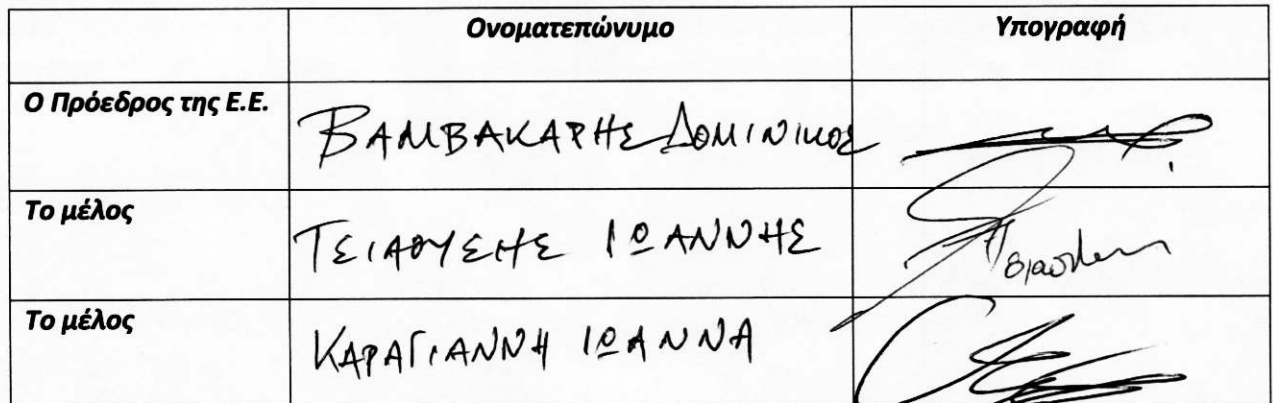 Ονοματεπώνυμο Υπογραφή
Ο Πρόεδρος της Ε.Ε. ΒΑΜΒΑΚΑΡΗΣ ΔΟΜΙΝΙΚΟΣ
Το μέλος ΙΩΑΝΝΗΣ
Το μέλος ΚΑΡΑΓΙΑΝΝΗ ΙΩΑΝΝΑ